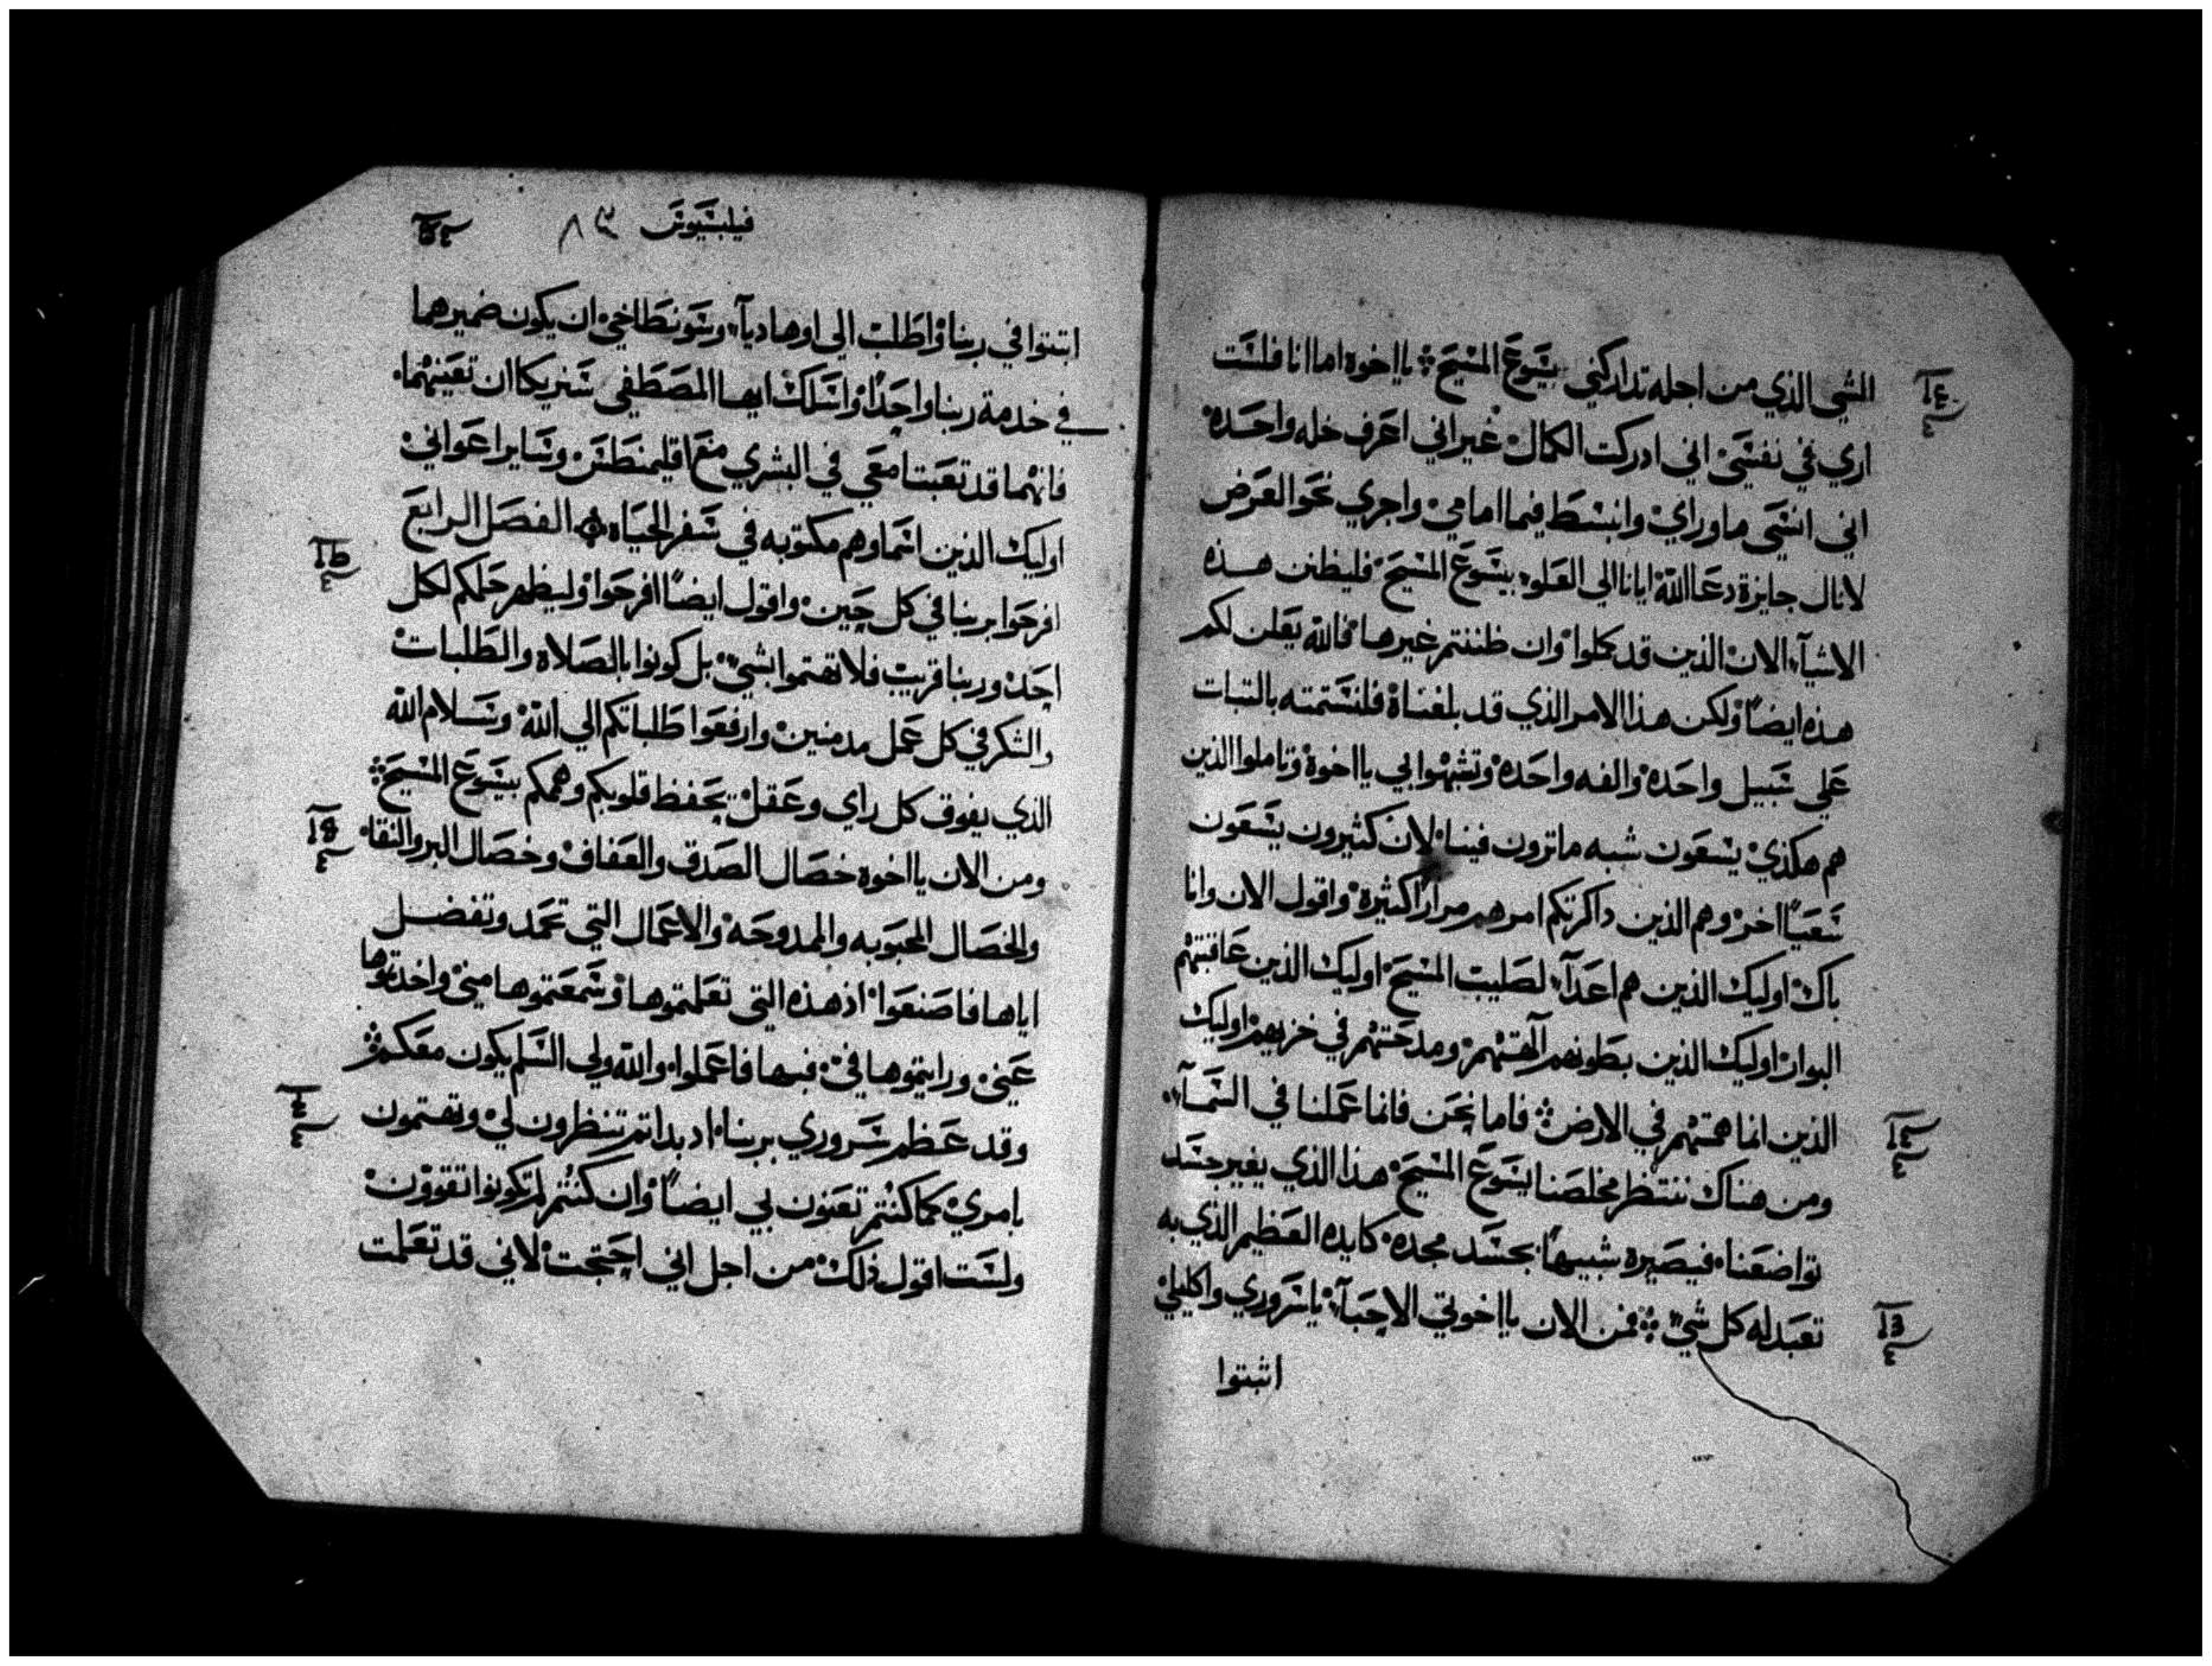 الشي الذي من اجله تداركني يَسَوعَ المسَيحَ ܀ يا اخوة اما انا فلسَت
اري في نفسَي اني ادركت الكمال غير اني اعَرف خله واحَده
اني انسَي ما وراي وانبسَط فيما امامي واجري نحَو العَرض
لانال جايزة دعَا الله ايانا الي العَلو بيسَوعَ المسَيحَ فليظنن هذه
الاشيآء الان الذين قد كملوا وان ظننتم غيرها فالله يعَلن لكم
هذه ايضاً ولكن هذا الامر الذي قد بلغناه فلنسَتمته بالتبات
عَلي سَبيل واحَده والفه واحَده وتشبهوا بي يا اخوة وتاملوا الذين
هم هكذي يسَعَون شبه ما ترون فينا لان كثيرون يسَعَون
سَعَياً اخر وهم الذين داكرتكم امرهم مراراً كثيرة واقول الان وانا
باك اوليك الذين هم اعَدآء لصَليب المسَيحَ اوليك الذين عَاقبتهم
البوار اوليك الذين بطونهم آلهتهم ومدحَتهم في خزيهم اوليك
الذين انما همتهم في الارض ܀ فاما نحَن فانما عَملنا في السَمآء
ومن هناك ننتظر مخلصَنا يسَوعَ المسَيحَ هذا الذي يغير جسَد
تواضعَنا فيصَيره شبيهاً بجسَد مجده كايده العَظيم الذي به
تعَبد له كل شيء ܀ فمن الان يا اخوتي الاحَبآء يا سَروري واكليلي
اثبتوا
فيلبسَيوسَ ٨٣
اتبتوا في ربنا واطلب الي اوهاديآ وسَونطاخي ان يكون ضميرهما
في خدمة ربنا واحَداً واسَلك ايها المصَطفي شَريكا ان تعَينهما
فانهما قد تعَبتا معَي في البشري معَ اقليمنطسَ وسَاير اعَواني
اوليك الذين اسَماوهم مكتوبه في سَفر الحَياه ܀ الفصَل الرابعَ
افرحَوا بربنا في كل حَين واقول ايضاً افرحَوا وليظهر حَلمكم لكل
احَد وربنا قريب فلا تهتموا بشي بل كونوا بالصَلاة والطلبات
والشكر في كل عَمل مدمنين وارفعَوا طلباتكم الي الله وسَلام الله
الذي يفوق كل راي وعَقل يحَفظ قلوبكم وهممكم بيسَوعَ المسَيحَ ܀
ومن الان يا اخوة خصَال الصَدق والعَفاف وخصَال البر والنقاء
والخصَال المحَبوبه والممدوحَه والاعَمال التي تحَمد وتفضل
اياها فاصَنعَوا اذ هذه التي تعَلمتموها وسَمعَتموها مني واخدتموها
عَني ورايتموها في فبها فاعَملوا والله ولي السَلم يكون معَكم ܀
وقد عَظم سَروري بربنا اد بداتم تنظرون لي وتهتمون
بامري كما كنتم تعَنون بي ايضاً وان كنتم لم تكونوا تقوون
ولسَت اقول ذلك من اجل اني احَتجت لاني قد تعَلمت